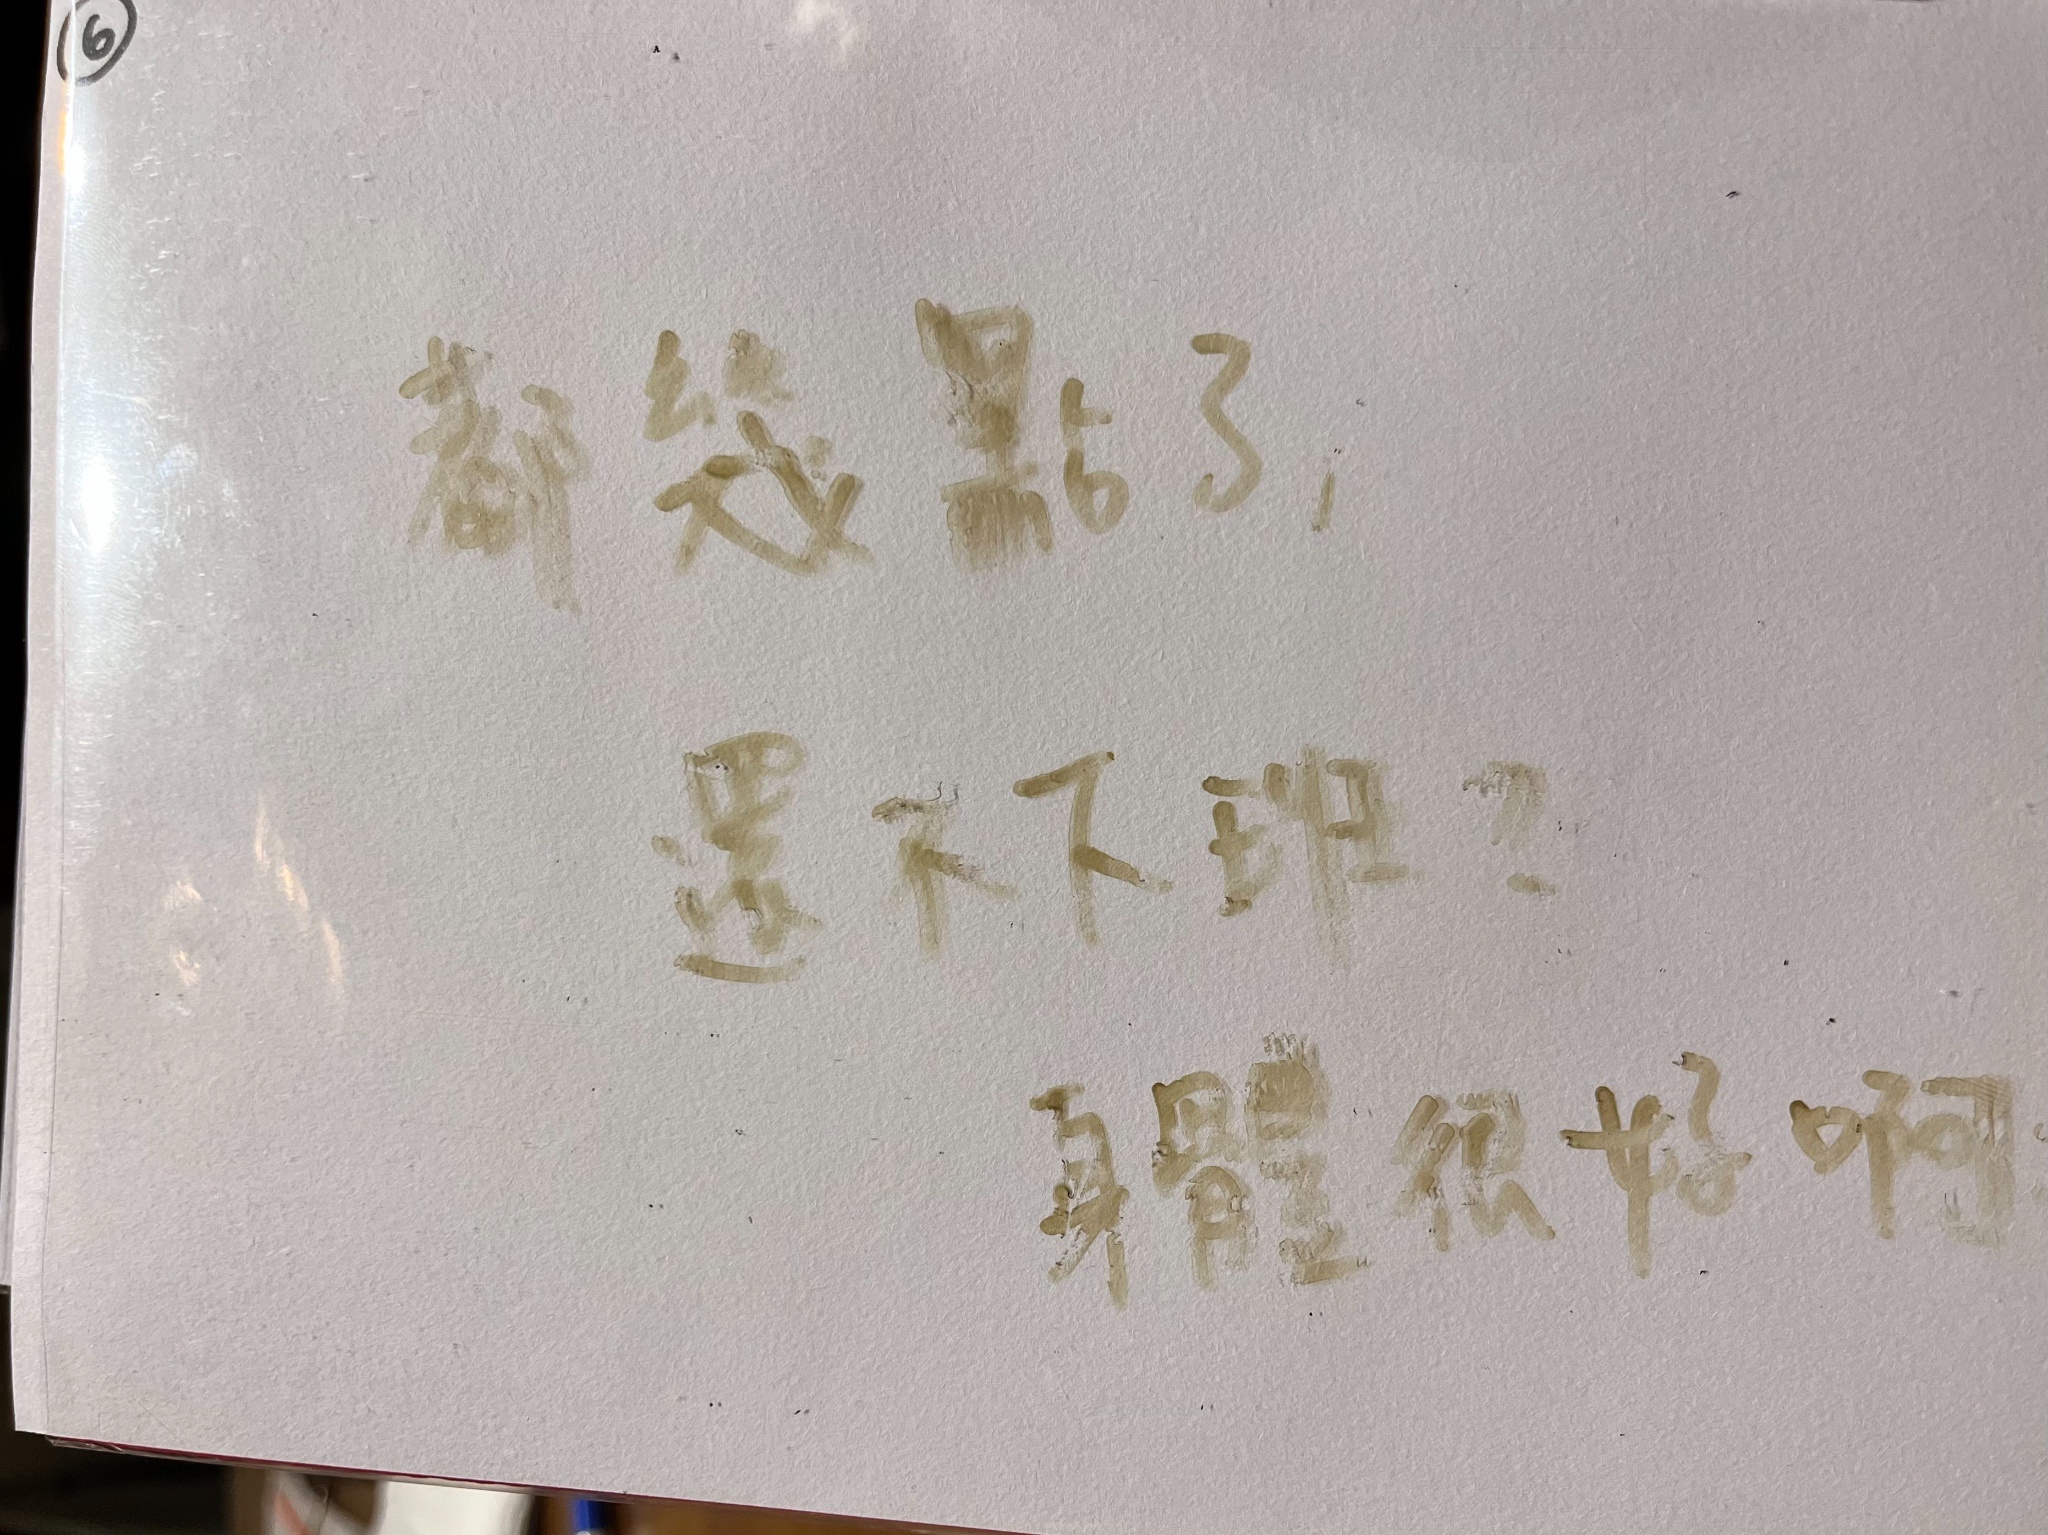 ⑥
都幾點了,
還不下班?
身體很好啊